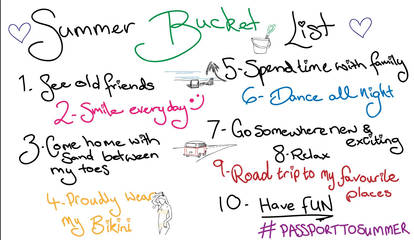 Summer Bucket List
1. See old friends
2- Smile everyday
3- Come home with
sand between
my toes
4- Proudly wear
my Bikini
5- Spend time with family
6- Dance all night
7- Go somewhere new &
exciting
8- Relax
9- Road trip to my favourite
places
10- Have FUN
#PASSPORTTOSUMMER